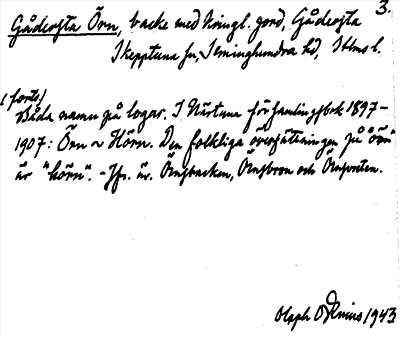 3.
Gådersta Örn, backe med kringl. jord, Gådersta
Skepptuna sn, Seminghundra hd, Sthms l.
(forts)
Båda namn på logar. I Närtuna församlingsbok 1897–
1907: Örn ~ Hörn. Den folkliga översättningen på "örn"
är "hörn". – Jfr. är. Örnsbacken, Örnsbron och Örnporten.
Olaph Odenius 1943